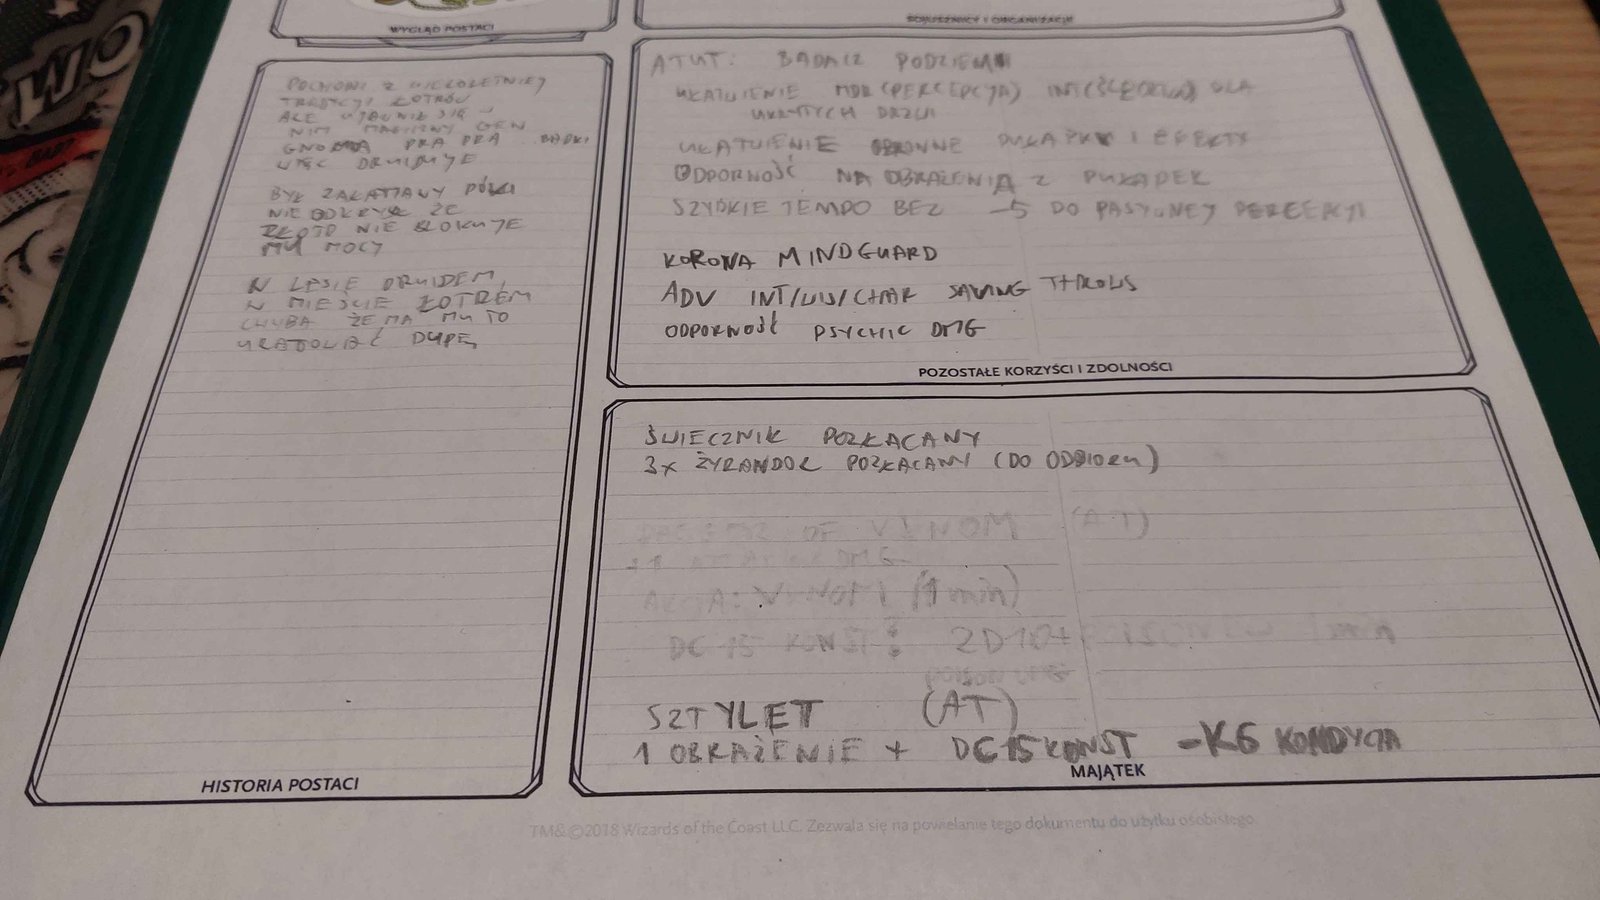 WO
WYGLĄD POSTACI
SOJUSZNICY I ORGANIZACJE
POCHODZI Z WIELOLETNIEJ
TRADYCJI ŁOTRÓW
ALE UJAWNIŁ SIĘ W
NIM MAGICZNY GEN
GNOMA PRA PRA BABKI
WIĘC DRUIDUJE
BYŁ ZAŁAMANY PÓKI
NIE ODKRYŁ ŻE
ZŁOTO NIE BLOKUJE
MU MOCY
W LESIE DRUIDEM,
W MIEŚCIE ŁOTREM
CHYBA ŻE MA MU TO
URATOWAĆ DUPĘ
HISTORIA POSTACI
ATUT: BADACZ PODZIEMI
UŁATWIENIE MDR (PERCEPCJA) INT (ŚLEDZTWO) DLA
UKRYTYCH DRZWI
UŁATWIENIE OBRONNE PUŁAPKI I EFEKTY
ODPORNOŚĆ NA OBRAŻENIA Z PUŁAPEK
SZYBKIE TEMPO BEZ -5 DO PASYWNEJ PERCEPCJI
KORONA MINDGUARD
ADV INT/WIS/CHAR SAVING THROWS
ODPORNOŚĆ PSYCHIC DMG
POZOSTAŁE KORZYŚCI I ZDOLNOŚCI
ŚWIECZNIK POZŁACANY
3x ŻYRANDOL POZŁACANY (DO ODBIORU)
OF VENOM (AT)
DMG
AKCJA: (1 min)
DC 15 KONST: 2D10+ 1 min
POISON DMG
SZTYLET (AT)
1 OBRAŻENIE + DC 15 KONST -K6 KONDYCJA
MAJĄTEK
TM&©2018 Wizards of the Coast LLC. Zezwala się na powielanie tego dokumentu do użytku osobistego.